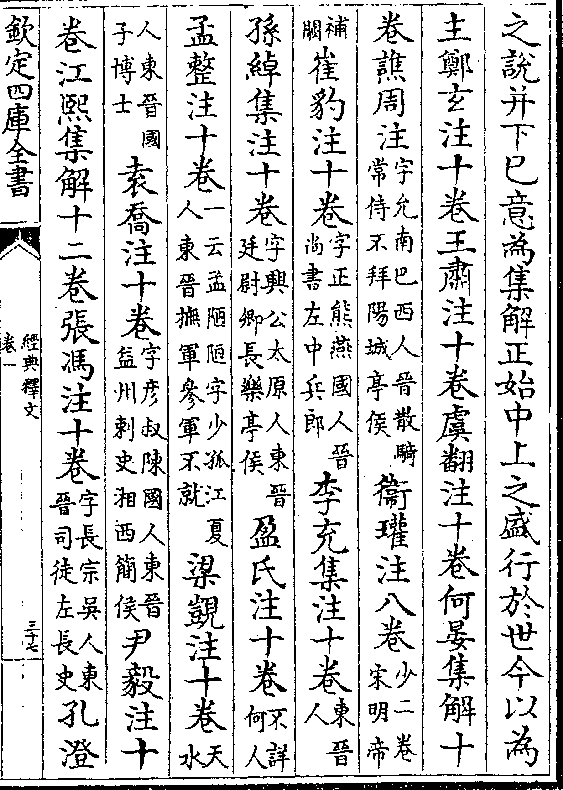 之說并下己意為集解正始中上之盛行於世今以為
主鄭玄注十卷王肅注十卷虞翻注十卷何晏集解十
卷譙周注字允南巴西人晉散騎常侍不拜陽城亭侯衞瓘注八卷少二卷宋明帝
補闕崔豹注十卷字正熊燕國人晉尚書左中兵郎李充集注十卷東晉人
孫綽集注十卷字興公太原人東晉廷尉卿長樂亭侯盈氏注十卷不詳何人
孟整注十卷一云孟陋陋字少孤江夏人東晉撫軍參軍不就梁覬注十卷天水
人東晉國子博士袁喬注十卷字彦叔陳國人東晉益州刺史湘西簡侯尹毅注十
卷江熙集解十二卷張馮注十卷字長宗吳人東晉司徒左長史孔澄
欽定四庫全書
經典釋文
卷一
三十七